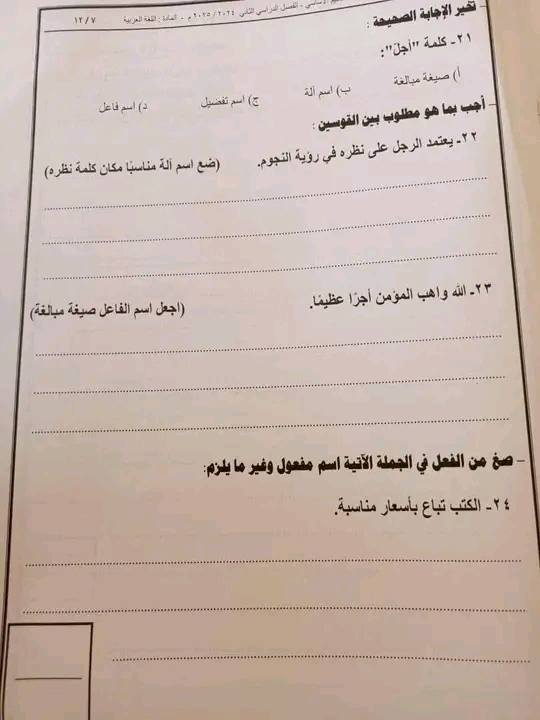 الأساسي - الفصل الدراسي الثاني ٢٠٢٤ / ٢٠٢٥ م - المادة : اللغة العربية ١٢/٧
- تخير الإجابة الصحيحة :
٢١- كلمة "أجلّ":
أ) صيغة مبالغة ب) اسم آلة ج) اسم تفضيل د) اسم فاعل
- أجب بما هو مطلوب بين القوسين :
٢٢- يعتمد الرجل على نظره في رؤية النجوم. (ضع اسم آلة مناسبًا مكان كلمة نظره)
٢٣- الله واهب المؤمن أجرًا عظيمًا. (اجعل اسم الفاعل صيغة مبالغة)
- صغ من الفعل في الجملة الآتية اسم مفعول وغير ما يلزم:
٢٤- الكتب تباع بأسعار مناسبة.